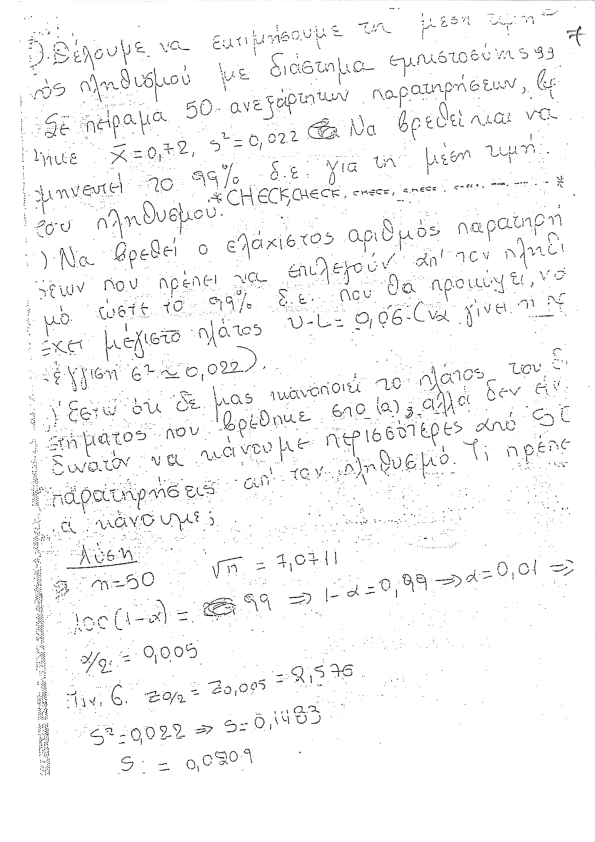 ) Θέλουμε να εκτιμήσουμε τη μέση τιμή
νός πληθυσμού με διάστημα εμπιστοσύνης 99 7
Σε πείραμα 50 ανεξάρτητων παρατηρήσεων, βρ
θηκε X̄=0,72, s²=0,022 Να βρεθεί και να
μηνευτεί το 99% δ.ε. για τη μέση τιμή.
του πληθυσμού. *CHECK,CHECK, CHECK, CHECK, *
) Να βρεθεί ο ελάχιστος αριθμός παρατηρή
σεων που πρέπει να επιλεγούν απ' τον πληθυ
μό ώστε το 99% δ.ε. που θα προκύψει, να
έχει μέγιστο πλάτος U-L=0,06 (να γίνει η πρ
έγγιση σ²≃0,022).
) Έστω ότι δε μας ικανοποιεί το πλάτος του δ.
στήματος που βρέθηκε στο (α), αλλά δεν είν
δυνατόν να κάνουμε περισσότερες από 50
παρατηρήσεις απ' τον πληθυσμό. Τι πρέπε
α κάνουμε;
Λύση
n=50 √n = 7,0711
100(1-α) = 99 ⇒ 1-α=0,99 ⇒ α=0,01 ⇒
α/2 = 0,005
Πιν. 6. zα/2 = z0,005 = 2,576
S²=0,022 ⇒ S=0,1483
S = 0,0209